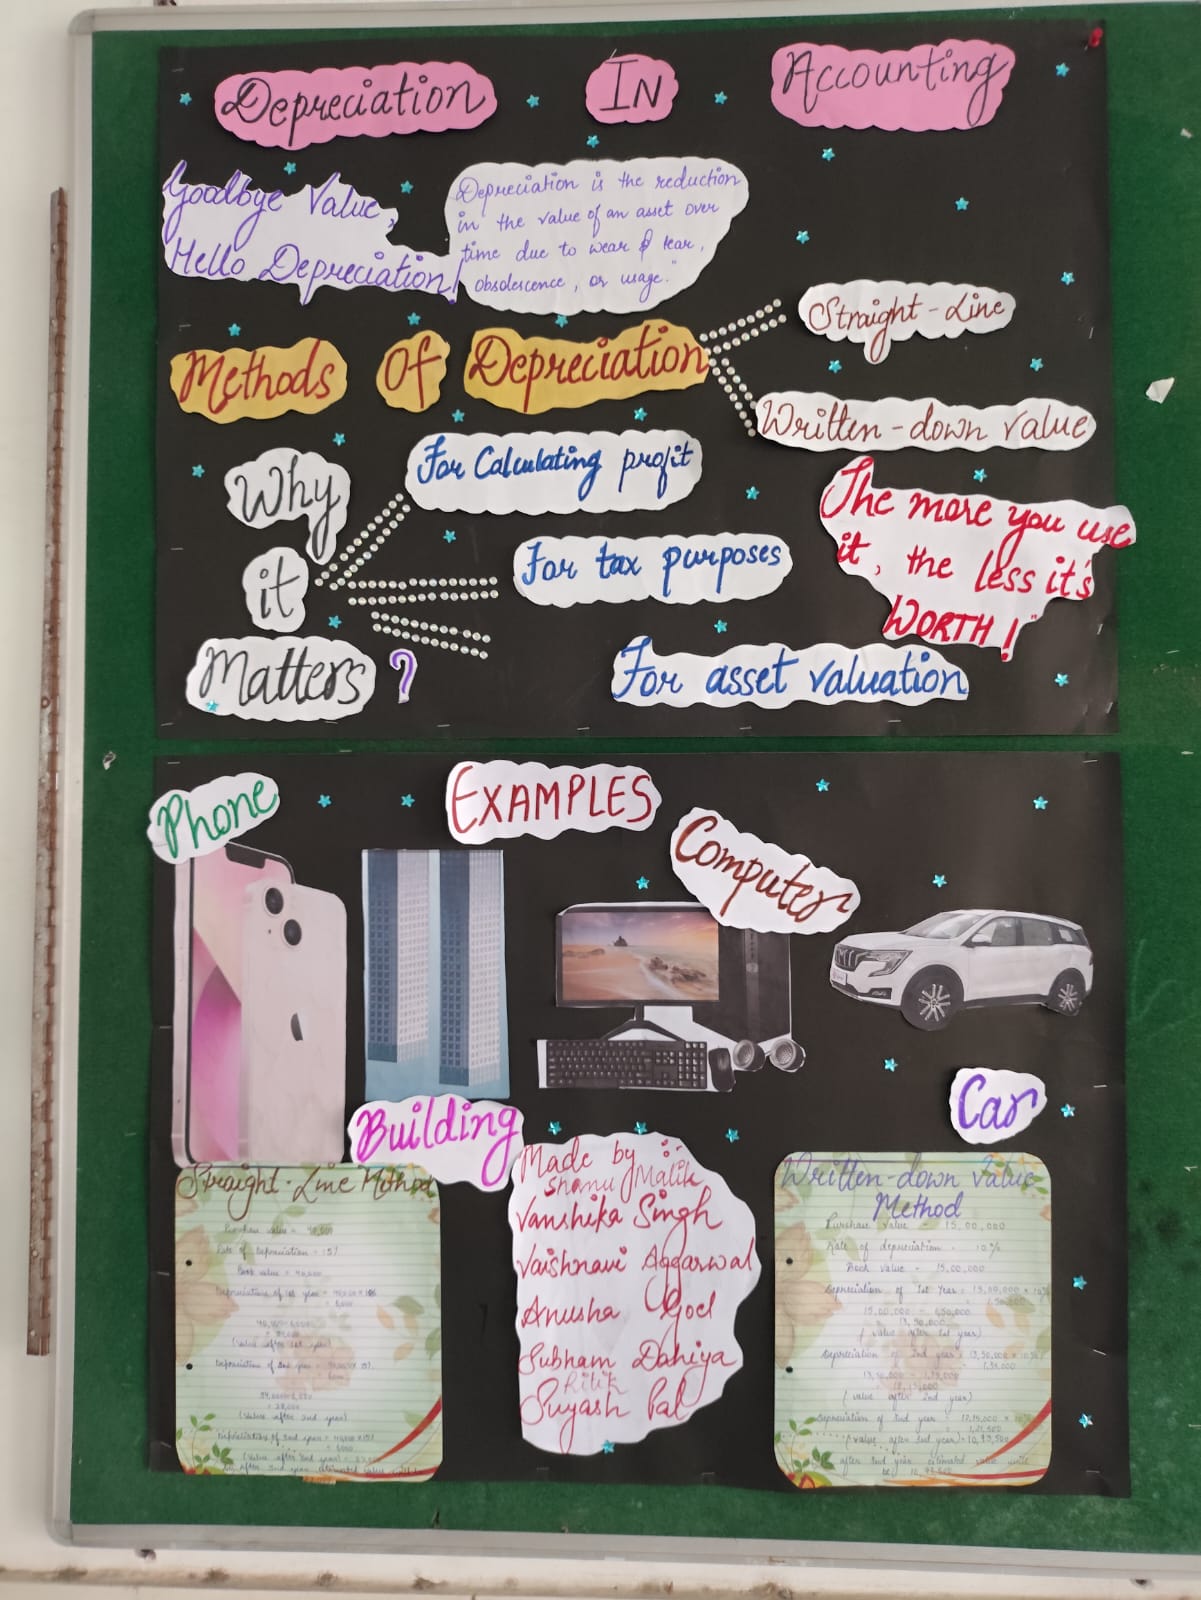 Depreciation IN Accounting
Goodbye Value,
Hello Depreciation!
Depreciation is the reduction
in the value of an asset over
time due to wear & tear,
obsolescence, or usage."
Methods Of Depreciation
Straight-Line
Written-down value
Why
it
Matters ?
For Calculating profit
For tax purposes
For asset valuation
The more you use
it, the less it's
WORTH!"
EXAMPLES
Phone
Computer
Building
Car
Straight-Line Method
Purchase value = 40,000
Rate of Depreciation = 15%
Book value = 40,000
Depreciation of 1st year =
(Value after 1st year)
Depreciation of 2nd year =
(Value after 2nd year)
Made by
Shanu Malik
Vanshika Singh
Vaishnavi Aggarwal
Anusha Goel
Subham Dahiya
Ritik
Suyash Pal
Written-down Value
Method
Purchase value - 15,00,000
Rate of depreciation - 10%
Book value - 15,00,000
Depreciation of 1st Year = 15,00,000 × 10%
= 1,50,000
15,00,000 - 1,50,000
13,50,000
(value after 1st year)
Depreciation of 2nd year = 13,50,000 × 10%
= 1,35,000
13,50,000 - 1,35,000
12,15,000
(value after 2nd year)
12,15,000 × 10%
1,21,500
after 3rd year estimated value